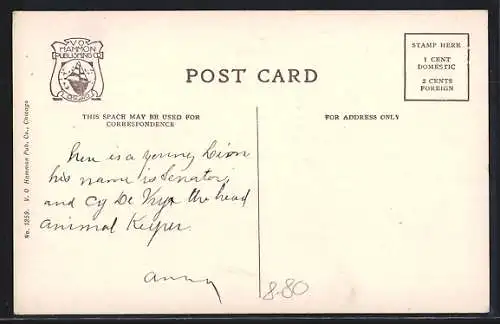 V.O.
HAMMON
PUBLISHING CO.
CHICAGO
POST CARD
STAMP HERE
1 CENT
DOMESTIC
2 CENTS
FOREIGN
THIS SPACE MAY BE USED FOR
CORRESPONDENCE
FOR ADDRESS ONLY
No. 1259. V. O. Hammon Pub. Co., Chicago
here is a young Lion
his name is Senator,
and Cy De the head
animal Keeper.
8-80